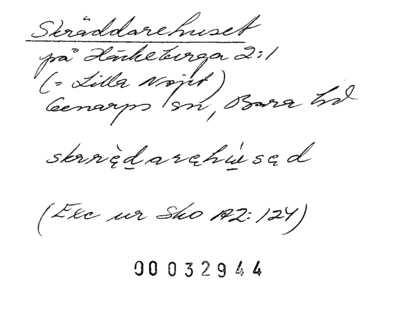 Skräddarehuset
på Häckeberga 2:1
(= Lilla Nöjet)
Genarps sn, Bara hd
skrędaręhusęd
(Exc ur Sko A2:124)
00032944